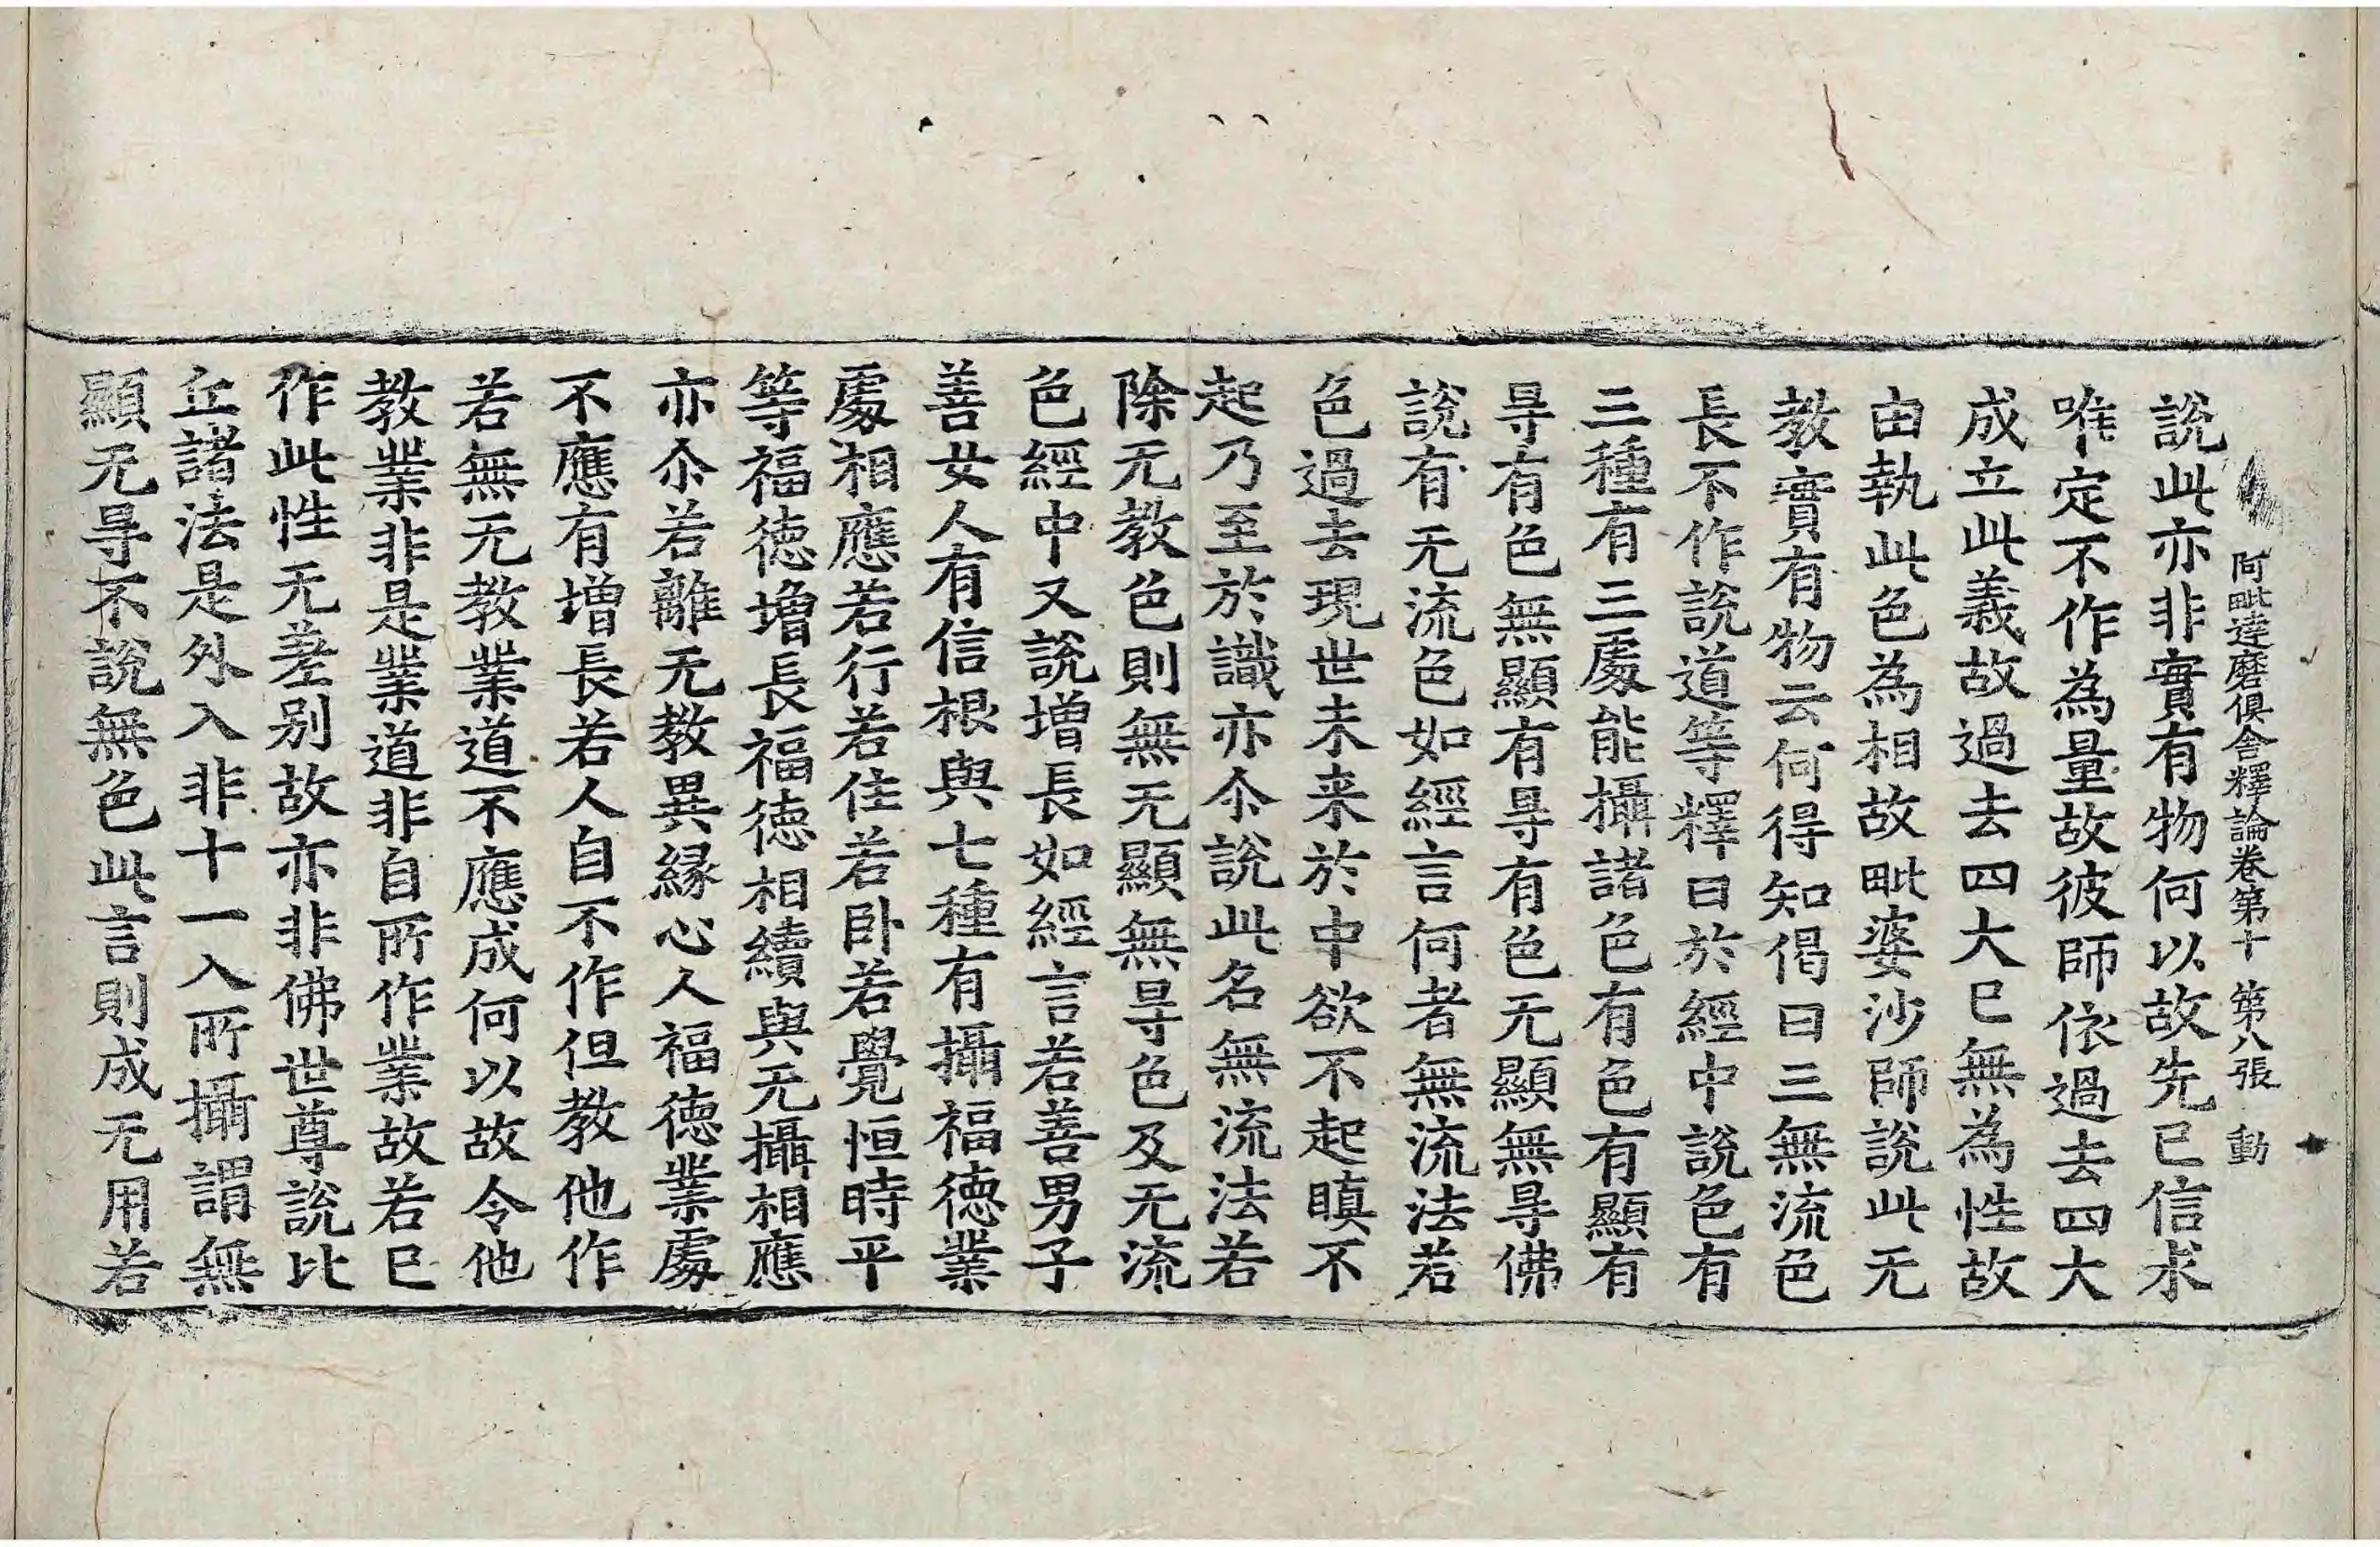 阿毗達磨俱舍釋論卷第十 第八張 動
說此亦非實有物何以故先已信求
唯定不作為量故彼師依過去四大
成立此義故過去四大已無為性故
由執此色為相故毗婆沙師說此无
教實有物云何得知偈曰三無流色
長不作說道等釋曰於經中說色有
三種有三處能攝諸色有色有顯有
㝵有色無顯有㝵有色无顯無㝵佛
說有无流色如經言何者無流法若
色過去現世未来於中欲不起瞋不
起乃至於識亦尒說此名無流法若
除无教色則無无顯無㝵色及无流
色經中又說增長如經言若善男子
善女人有信根與七種有攝福德業
處相應若行若住若卧若覺恒時平
等福德增長福德相續與无攝相應
亦尒若離无教異緣心人福德業處
不應有增長若人自不作但教他作
若無无教業道不應成何以故令他
教業非是業道非自所作業故若已
作此性无差别故亦非佛世尊說比
丘諸法是外入非十一入所攝謂無
顯无㝵不說無色此言則成无用若